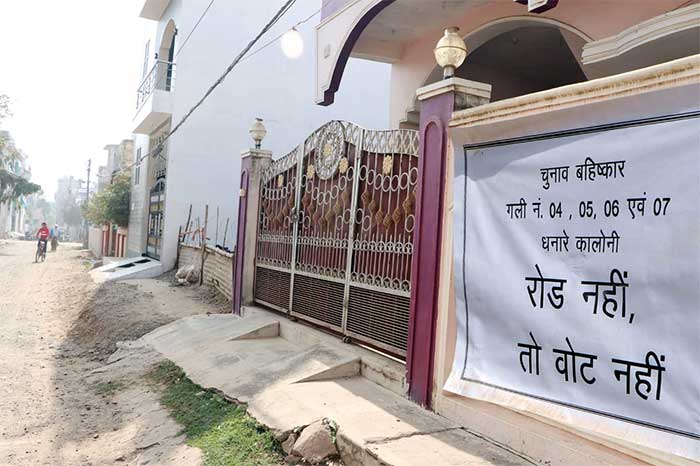 चुनाव बहिष्कार
गली नं. 04 , 05, 06 एवं 07
धनारे कालोनी
रोड नहीं,
तो वोट नहीं